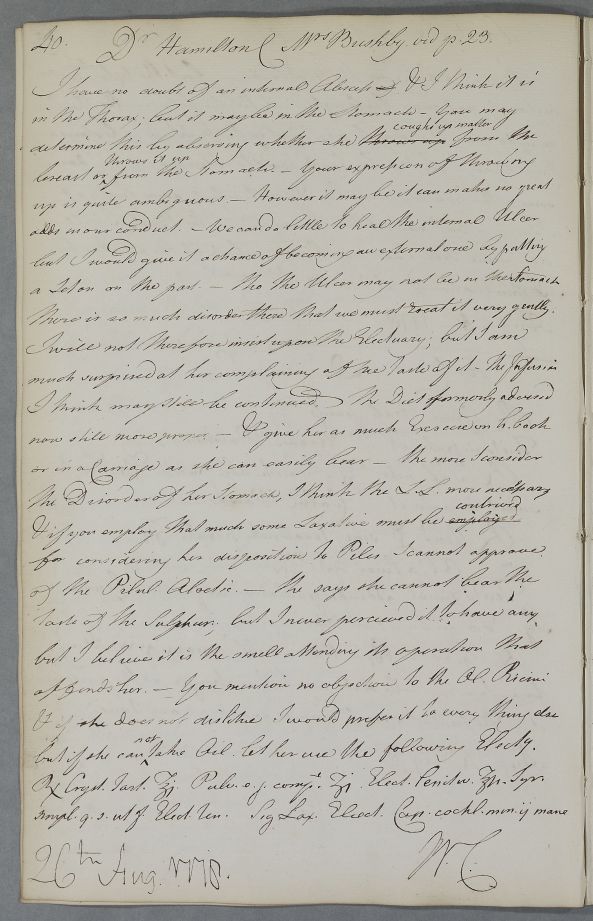 40. Dr Hamilton C Mrs Bushby vid p. 23.
I have no doubt of an internal Abscess & I think it is
in the Thorax, but it may be in the Stomach — You may
determine this by observing whether she throws up coughs up matter from the
breast or throws it up from the Stomach. — Your expression of throwing
up is quite ambiguous. — However it may be it can make no great
odds in our conduct. — We can do little to heal the internal Ulcer
but I would give it a chance of becoming an external one by putting
a Seton on the part. — tho the Ulcer may not be in the Stomach
there is so much disorder there that we must treat it very gently.
I will not therefore insist upon the Electuary, but I am
much surprised at her complaining of the taste of it — the Infusion
I think may still be continued. The Diet formerly advised
now still more proper — & give her as much Exercise on h. back
or in a Carriage as she can easily bear — the more I consider
the Disorder of her Stomach, I think the L.L. more necessary
& if you employ that much some Laxative must be employed contrived
for considering her disposition to Piles I cannot approve
of the Pilul. Aloetic. — she says she cannot bear the
taste of the Sulphur. but I never perceived it to have any
but I believe it is the smell attending its operation that
offends her. — You mention no objection to the Ol. Ricini
& if she does not dislike I would prefer it to every thing else
but if she can not take Oil. let her use the following Electy.
℞ Cryst. Tart. ℥j. Pulv. e. j. compt. ʒj Elect. Lenitiv. ℥jss. Syr.
simpl. q. s. ut f. Elect. ten. Sig Lax. Elect. Cap. cochl. min. ij mane
W C.
26th Aug. 1778.